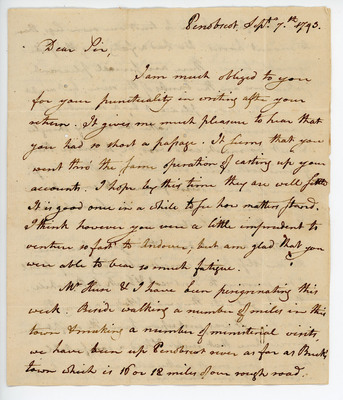 Penobscot, Sept. 7.th 1793.
Dear Sir,
I am much obliged to you
for your punctuality in writing after your
return. It gives me much pleasure to hear that
you had so short a passage. It seems that you
went thro' the same operation of casting up your
accounts. I hope by this time they are well settled
It is good once in a while to see how matters stand.
I think however you were a little imprudent to
venture so far to Andover, but am glad that you
were able to bear so much fatigue.
Mr & I have been peregrinating this
week. Beside walking a number of miles in this
town & making a number of ministerial visits,
we have been up Penobscot river as far as Bucks
town which is 16 or 18 miles of our rough road.